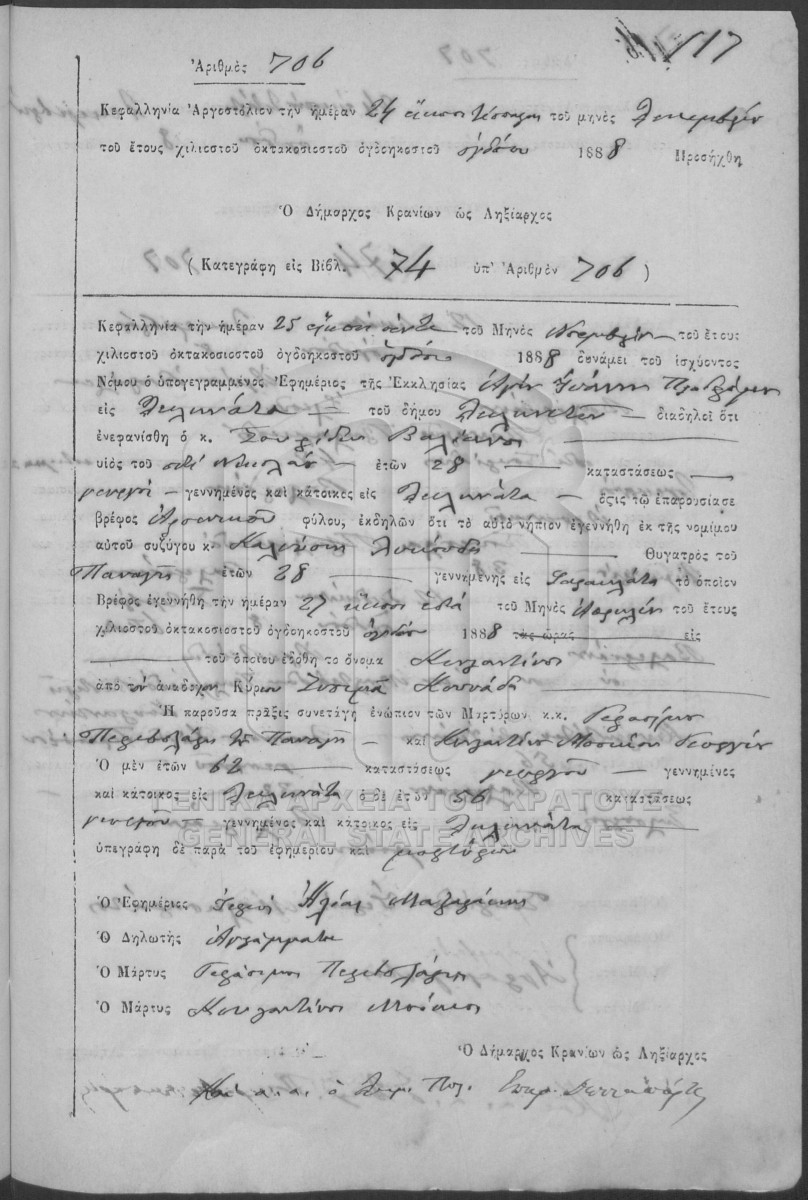 117
Ἀριθμὸς 706
Κεφαλληνία Ἀργοστόλιον τὴν ἡμέραν 24 εἴκοσι τέσσαρας τοῦ μηνὸς Δεκεμβρίου
τοῦ ἔτους χιλιοστοῦ ὀκτακοσιοστοῦ ὀγδοηκοστοῦ ὀγδόου 1888 Προσήχθη
Ὁ Δήμαρχος Κρανίων ὡς Ληξίαρχος
(Κατεγράφη εἰς Βιβλ. 74 ὑπ' Ἀριθμὸν 706)
Κεφαλληνία τὴν ἡμέραν 25 εἴκοσι πέντε τοῦ Μηνὸς Νοεμβρίου τοῦ ἔτους
χιλιοστοῦ ὀκτακοσιοστοῦ ὀγδοηκοστοῦ ὀγδόου 1888 δυνάμει τοῦ ἰσχύοντος
Νόμου ὁ ὑπογεγραμμένος Ἐφημέριος τῆς Ἐκκλησίας Ἁγίου Ἰωάννου Προδρόμου
εἰς Δειλινάτα τοῦ δήμου διαδηλοῖ ὅτι
ἐνεφανίσθη ὁ κ. Σπυρίδων
υἱὸς τοῦ ποτὲ Νικολάου ἐτῶν 28 καταστάσεως
γεωργοῦ γεννημένος καὶ κάτοικος εἰς Δειλινάτα ὅςτις τῷ ἐπαρουσίασε
βρέφος Ἀρσενικοῦ φύλου, ἐκδηλῶν ὅτι τὸ αὐτὸ νήπιον ἐγεννήθη ἐκ τῆς νομίμου
αὐτοῦ συζύγου κ. Θυγατρὸς τοῦ
Παναγῆ ἐτῶν 28 γεννημένης εἰς Φαρακλάτα τὸ ὁποῖον
Βρέφος ἐγεννήθη τὴν ἡμέραν 27 εἴκοσι ἑπτά τοῦ Μηνὸς Ἀπριλίου τοῦ ἔτους
χιλιοστοῦ ὀκτακοσιοστοῦ ὀγδοηκοστοῦ ὀγδόου 1888 τὰς ὥρας εἰς
τοῦ ὁποίου ἐδόθη τὸ ὄνομα Κωνσταντῖνος
ἀπὸ τὸν ἀνάδοχον Κύριον
Ἡ παροῦσα πρᾶξις συνετάγη ἐνώπιον τῶν Μαρτύρων κ.κ. Γερασίμου
Παναγῆ καὶ Κωνσταντίνου Γεωργίου
Ὁ μὲν ἐτῶν 62 καταστάσεως γεωργοῦ γεννημένος
καὶ κάτοικος εἰς Δειλινάτα ὁ δὲ ἐτῶν 56 καταστάσεως
γεωργοῦ γεννημένος καὶ κάτοικος εἰς Δειλινάτα
ὑπεγράφη δὲ παρὰ τοῦ ἐφημερίου καὶ μαρτύρων
ΓΕΝΙΚΑ ΑΡΧΕΙΑ ΤΟΥ ΚΡΑΤΟΥΣ
GENERAL STATE ARCHIVES
Ὁ Ἐφημέριος Ἱερεὺς
Ὁ Δηλωτὴς Ἀγράμματος
Ὁ Μάρτυς Γεράσιμος
Ὁ Μάρτυς Κωνσταντῖνος
Ὁ Δήμαρχος Κρανίων ὡς Ληξίαρχος